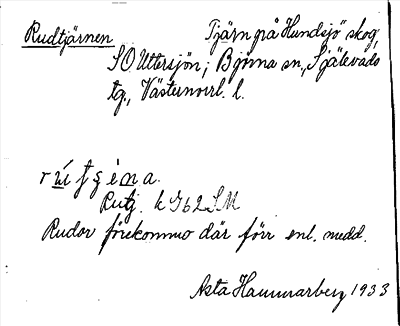 Rudtjärnen Tjärn på Hundsjö skog,
SO Uttersjön; Björna sn., Själevads
tg., Västernorrl. l.
Rutj. k 962 SM
Rudor förekommo där förr enl. medd.
Asta Hammarberg 1933